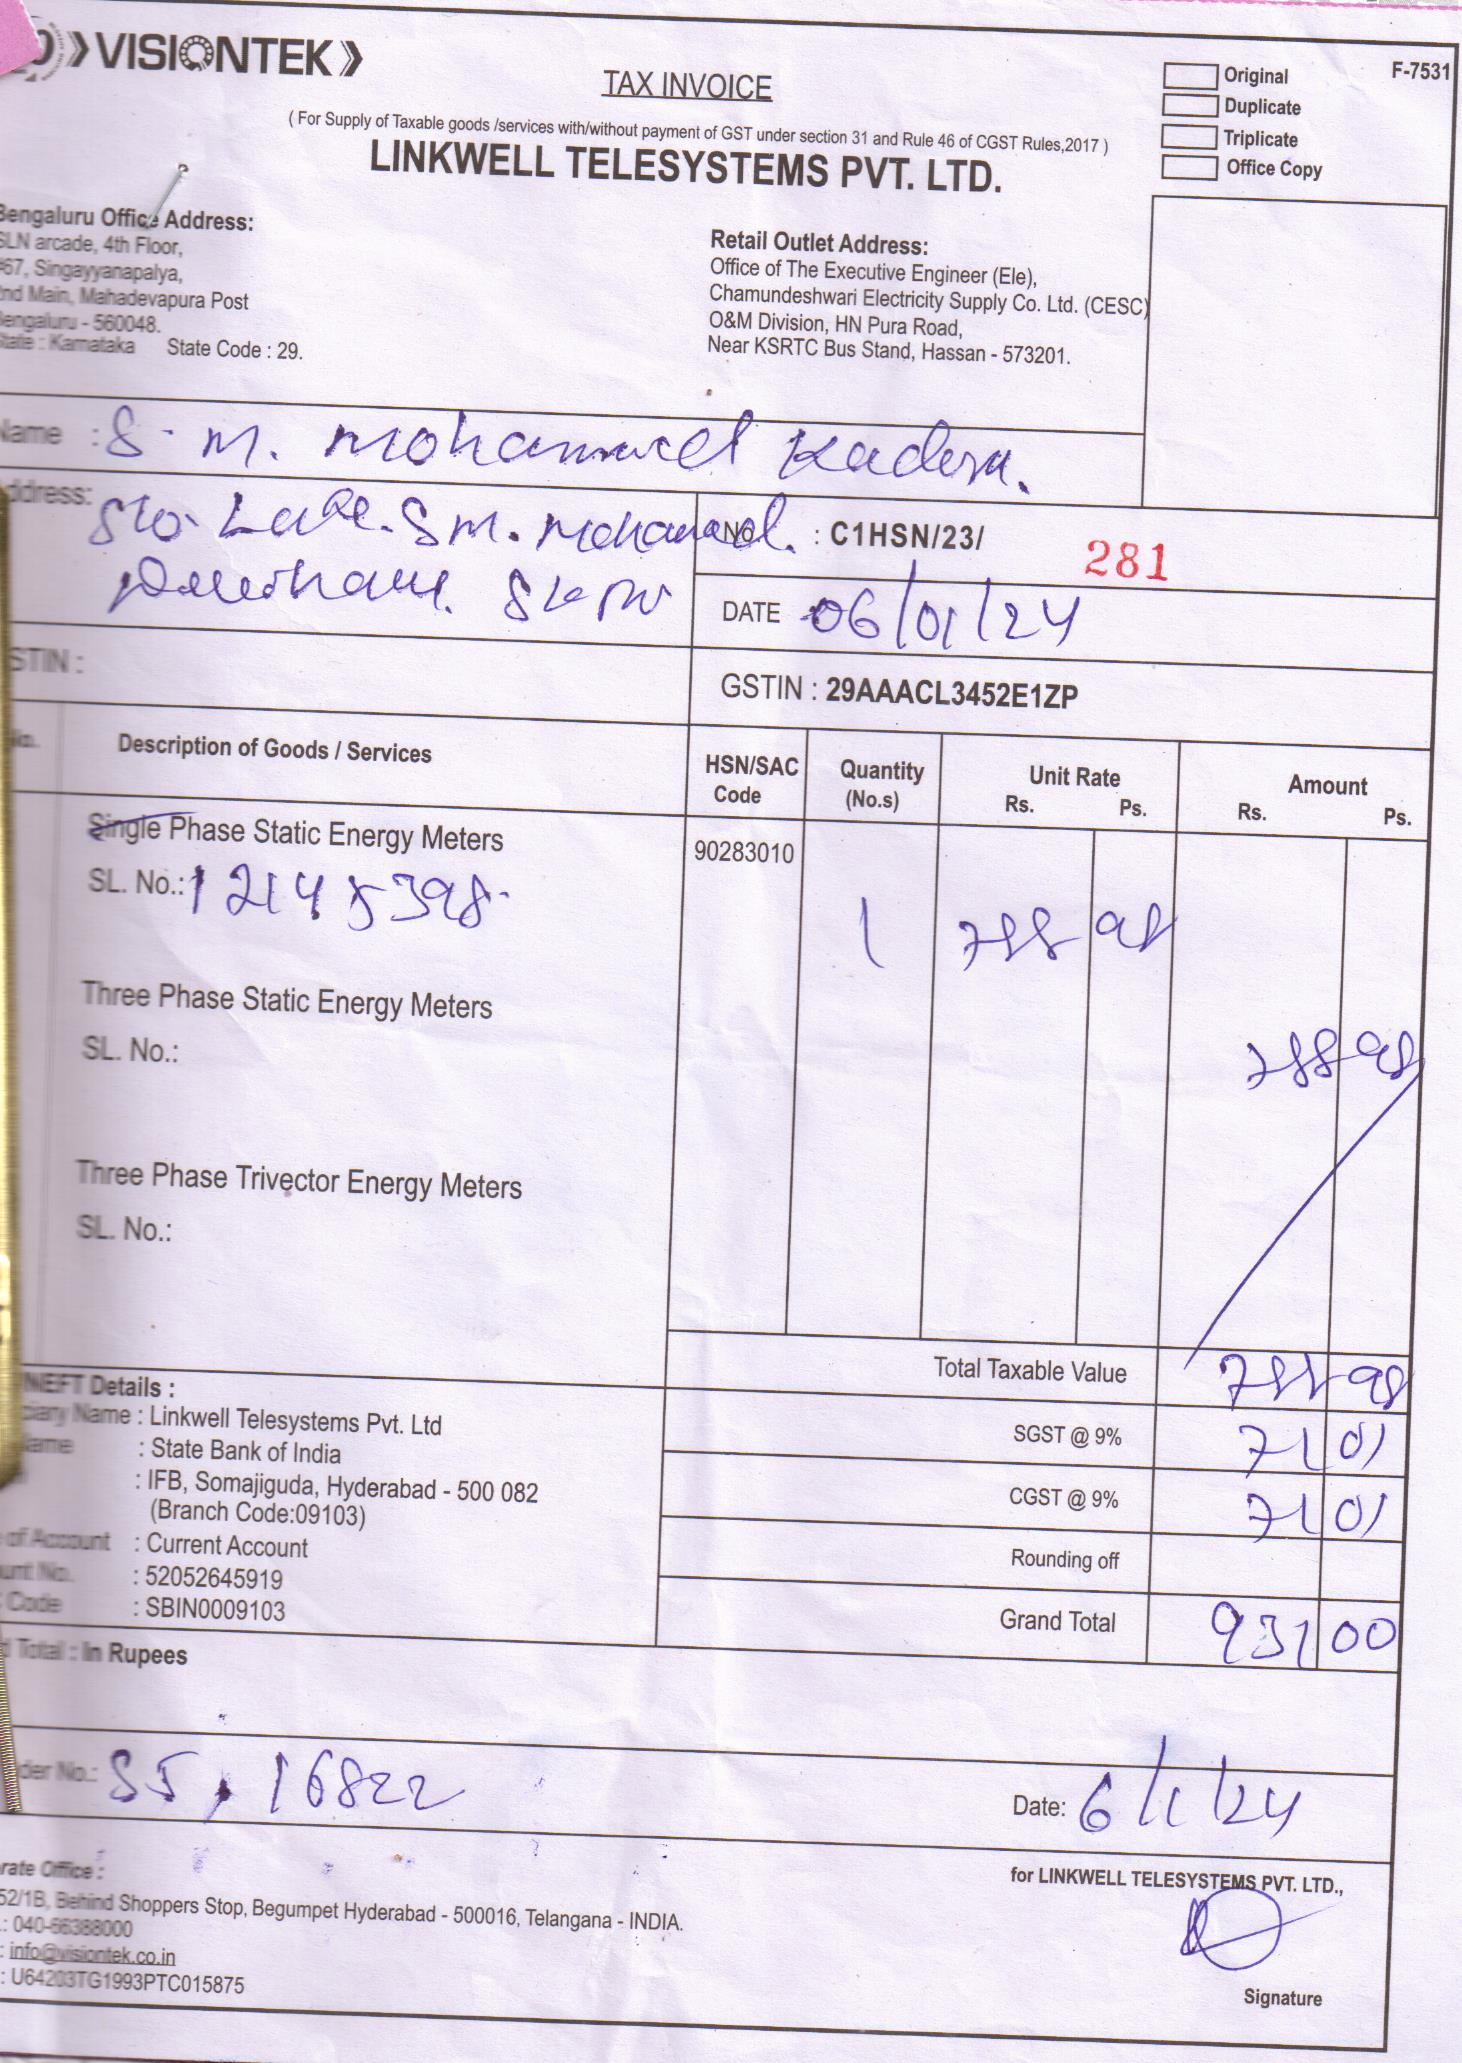 VISIONTEK
TAX INVOICE
Original
Duplicate
Triplicate
Office Copy
F-7531
( For Supply of Taxable goods /services with/without payment of GST under section 31 and Rule 46 of CGST Rules,2017 )
LINKWELL TELESYSTEMS PVT. LTD.
Bengaluru Office Address:
SLN arcade, 4th Floor,
#67, Singayyanapalya,
2nd Main, Mahadevapura Post
Bengaluru - 560048.
State : Karnataka State Code : 29.
Retail Outlet Address:
Office of The Executive Engineer (Ele),
Chamundeshwari Electricity Supply Co. Ltd. (CESC)
O&M Division, HN Pura Road,
Near KSRTC Bus Stand, Hassan - 573201.
Name : S. M. Mohammed
Address: S/o. Late. S M. Mohamad.
No : C1HSN/23/ 281
DATE 06/01/24
GSTIN :
GSTIN : 29AAACL3452E1ZP
No. Description of Goods / Services HSN/SAC Code Quantity (No.s) Unit Rate Rs. Ps. Amount Rs. Ps.
Single Phase Static Energy Meters 90283010
SL. No.: 12145398 1 788 98
Three Phase Static Energy Meters
SL. No.: 788 98
Three Phase Trivector Energy Meters
SL. No.:
Total Taxable Value 788 98
SGST @ 9% 71 01
CGST @ 9% 71 01
Rounding off
Grand Total 931 00
NEFT Details :
ciary Name : Linkwell Telesystems Pvt. Ltd
Name : State Bank of India
: IFB, Somajiguda, Hyderabad - 500 082
(Branch Code:09103)
of Account : Current Account
unt No. : 52052645919
Code : SBIN0009103
Total : In Rupees
der No.: SJ, 16822
Date: 6/1/24
rate Office :
52/1B, Behind Shoppers Stop, Begumpet Hyderabad - 500016, Telangana - INDIA.
.: 040-66388000
: info@visiontek.co.in
: U64203TG1993PTC015875
for LINKWELL TELESYSTEMS PVT. LTD.,
Signature